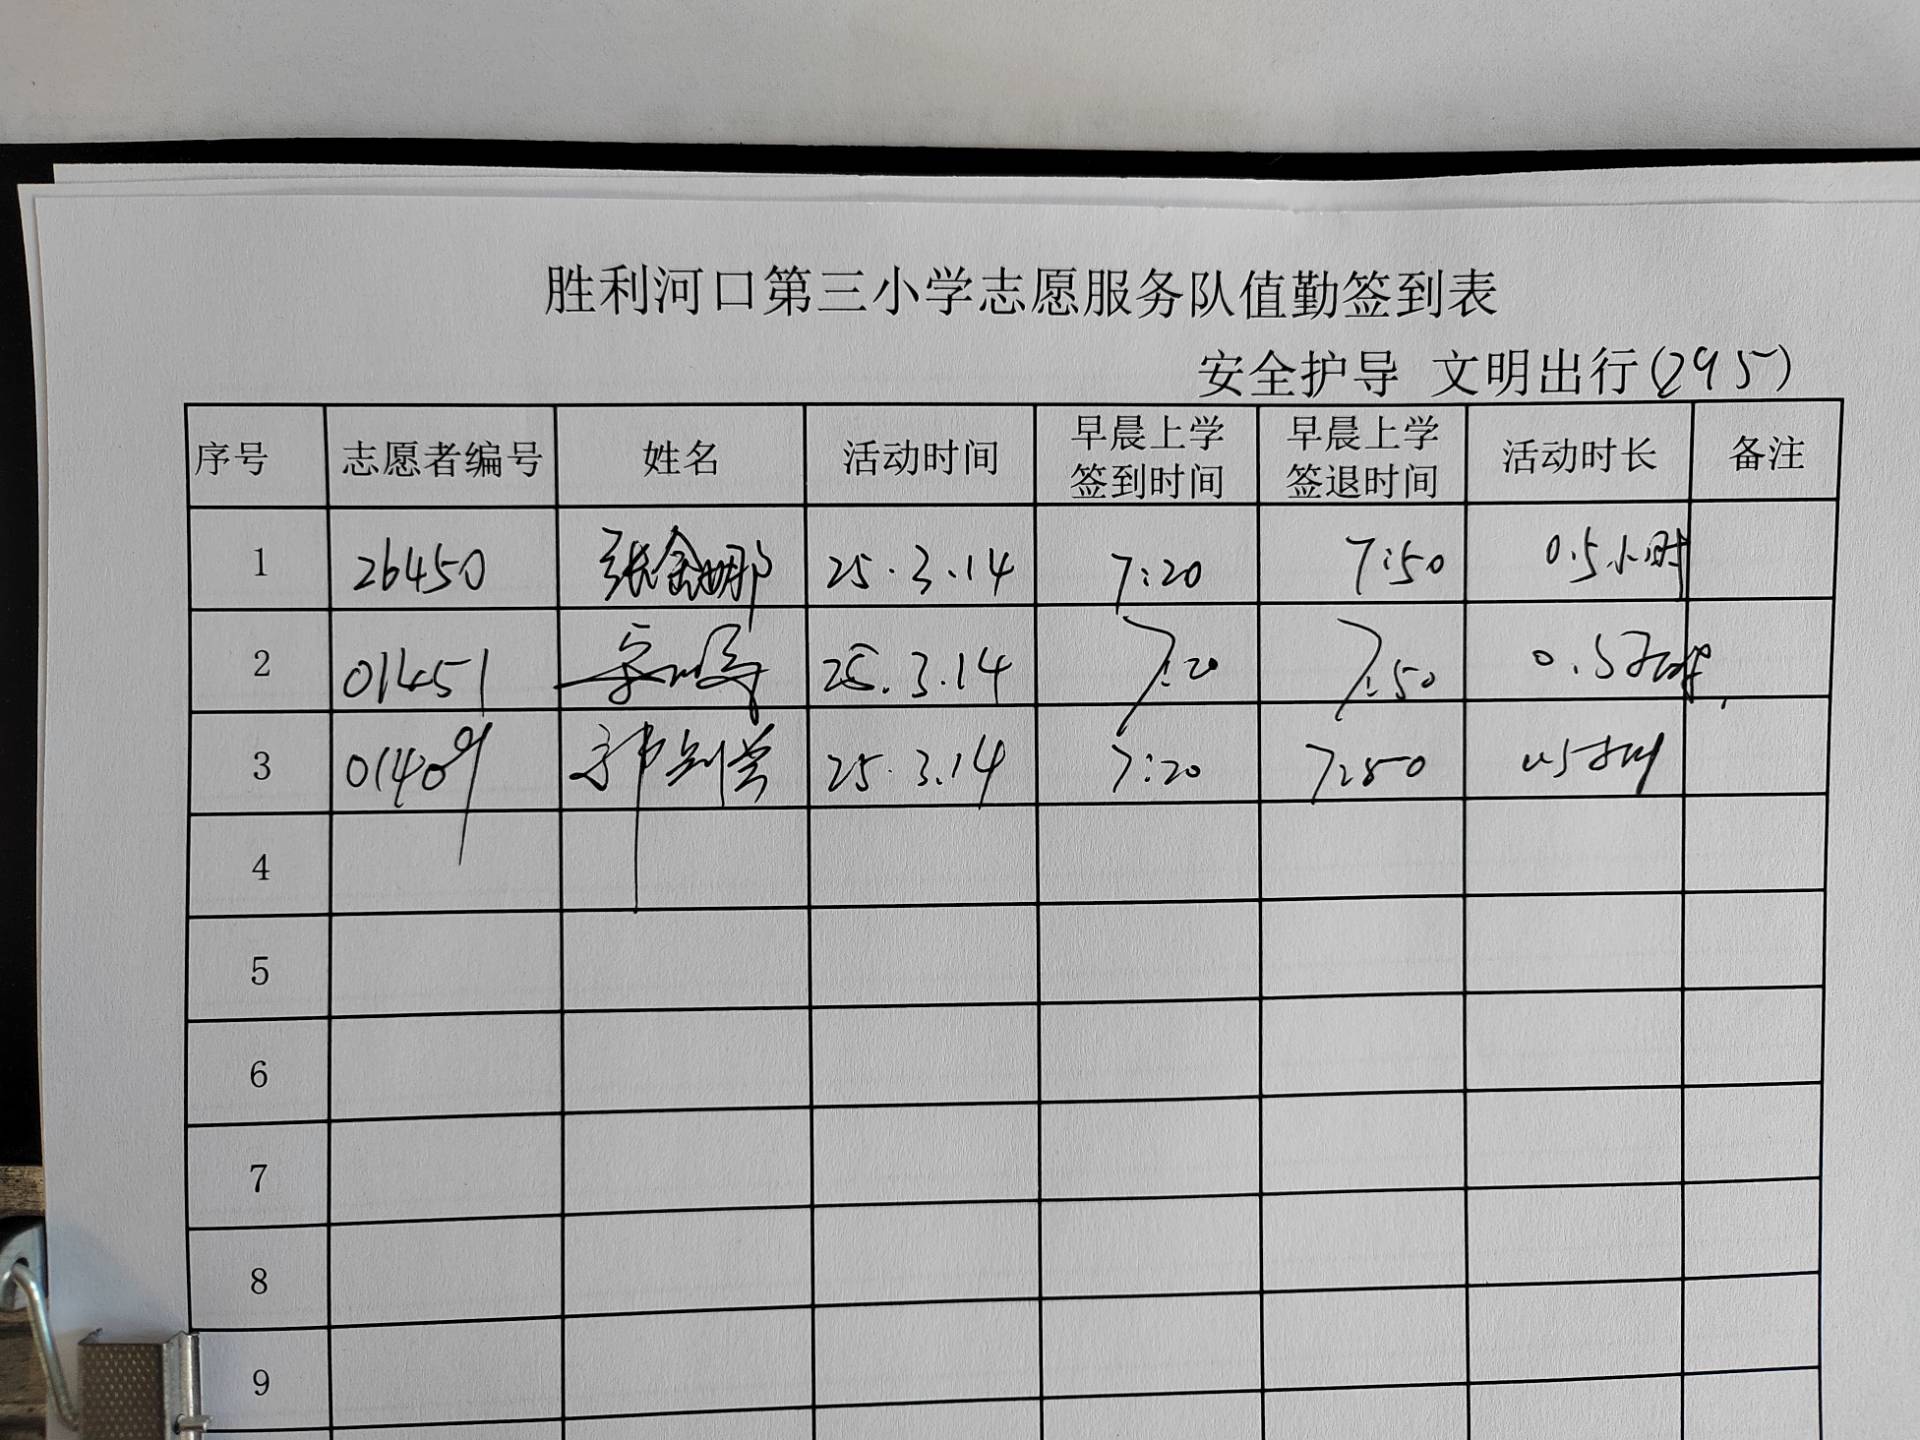 胜利河口第三小学志愿服务队值勤签到表
安全护导 文明出行(295)
序号 志愿者编号 姓名 活动时间 早晨上学签到时间 早晨上学签退时间 活动时长 备注
1 26450 张金娜 25.3.14 7:20 7:50 0.5小时
2 01451 25.3.14 7:20 7:50 0.5小时
3 01409 郭剑学 25.3.14 7:20 7:50 0.5小时
4
5
6
7
8
9